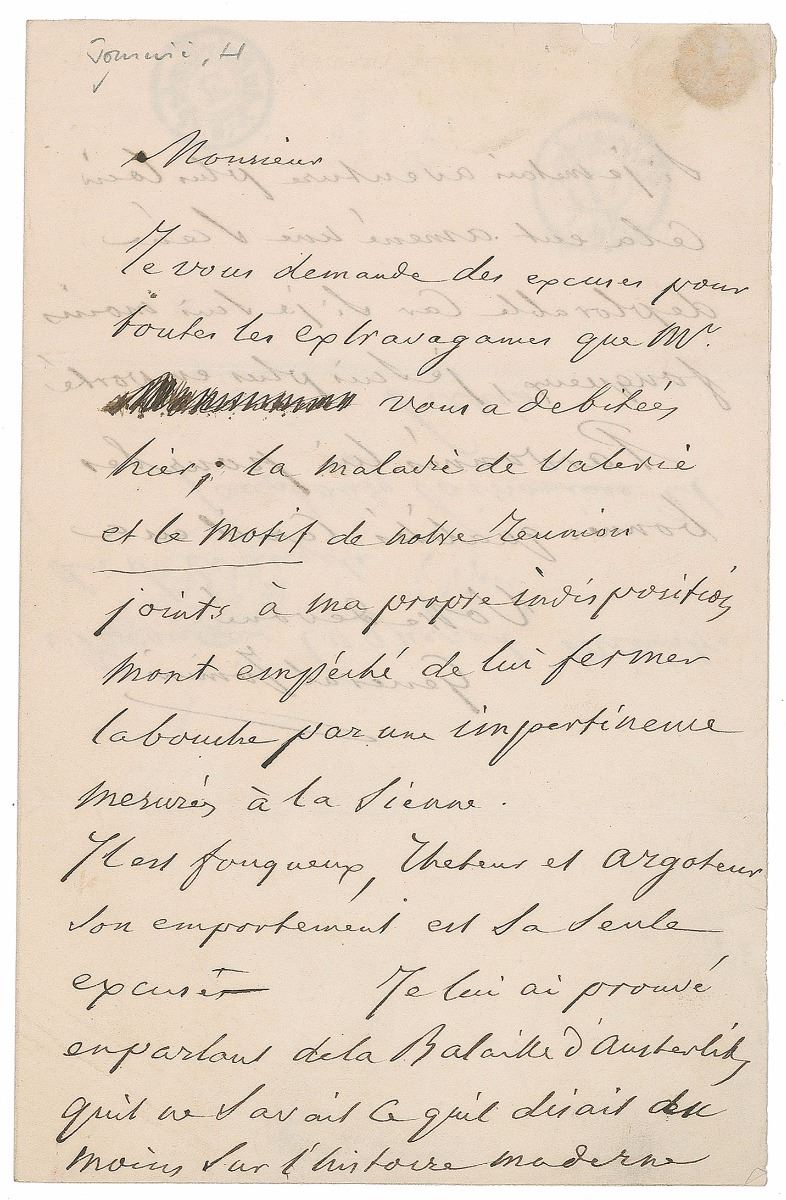 Monsieur
Je vous demande des excuses pour
toutes les extravagances que Mr.
vous a debitées
hier; la maladie de Valerie
et le motif de notre reunion
joints à ma propre indisposition
mont empéché de lui fermer
la bouche par une impertinence
mesurée à la Sienne.
Il est fougueux, Rheteur et argoteur
son emportement est sa seule
excuse Je lui ai prouvé
en parlant de la Bataille d'Austerlitz
qu'il ne savait ce qu'il disait du
moins sur l'histoire moderne